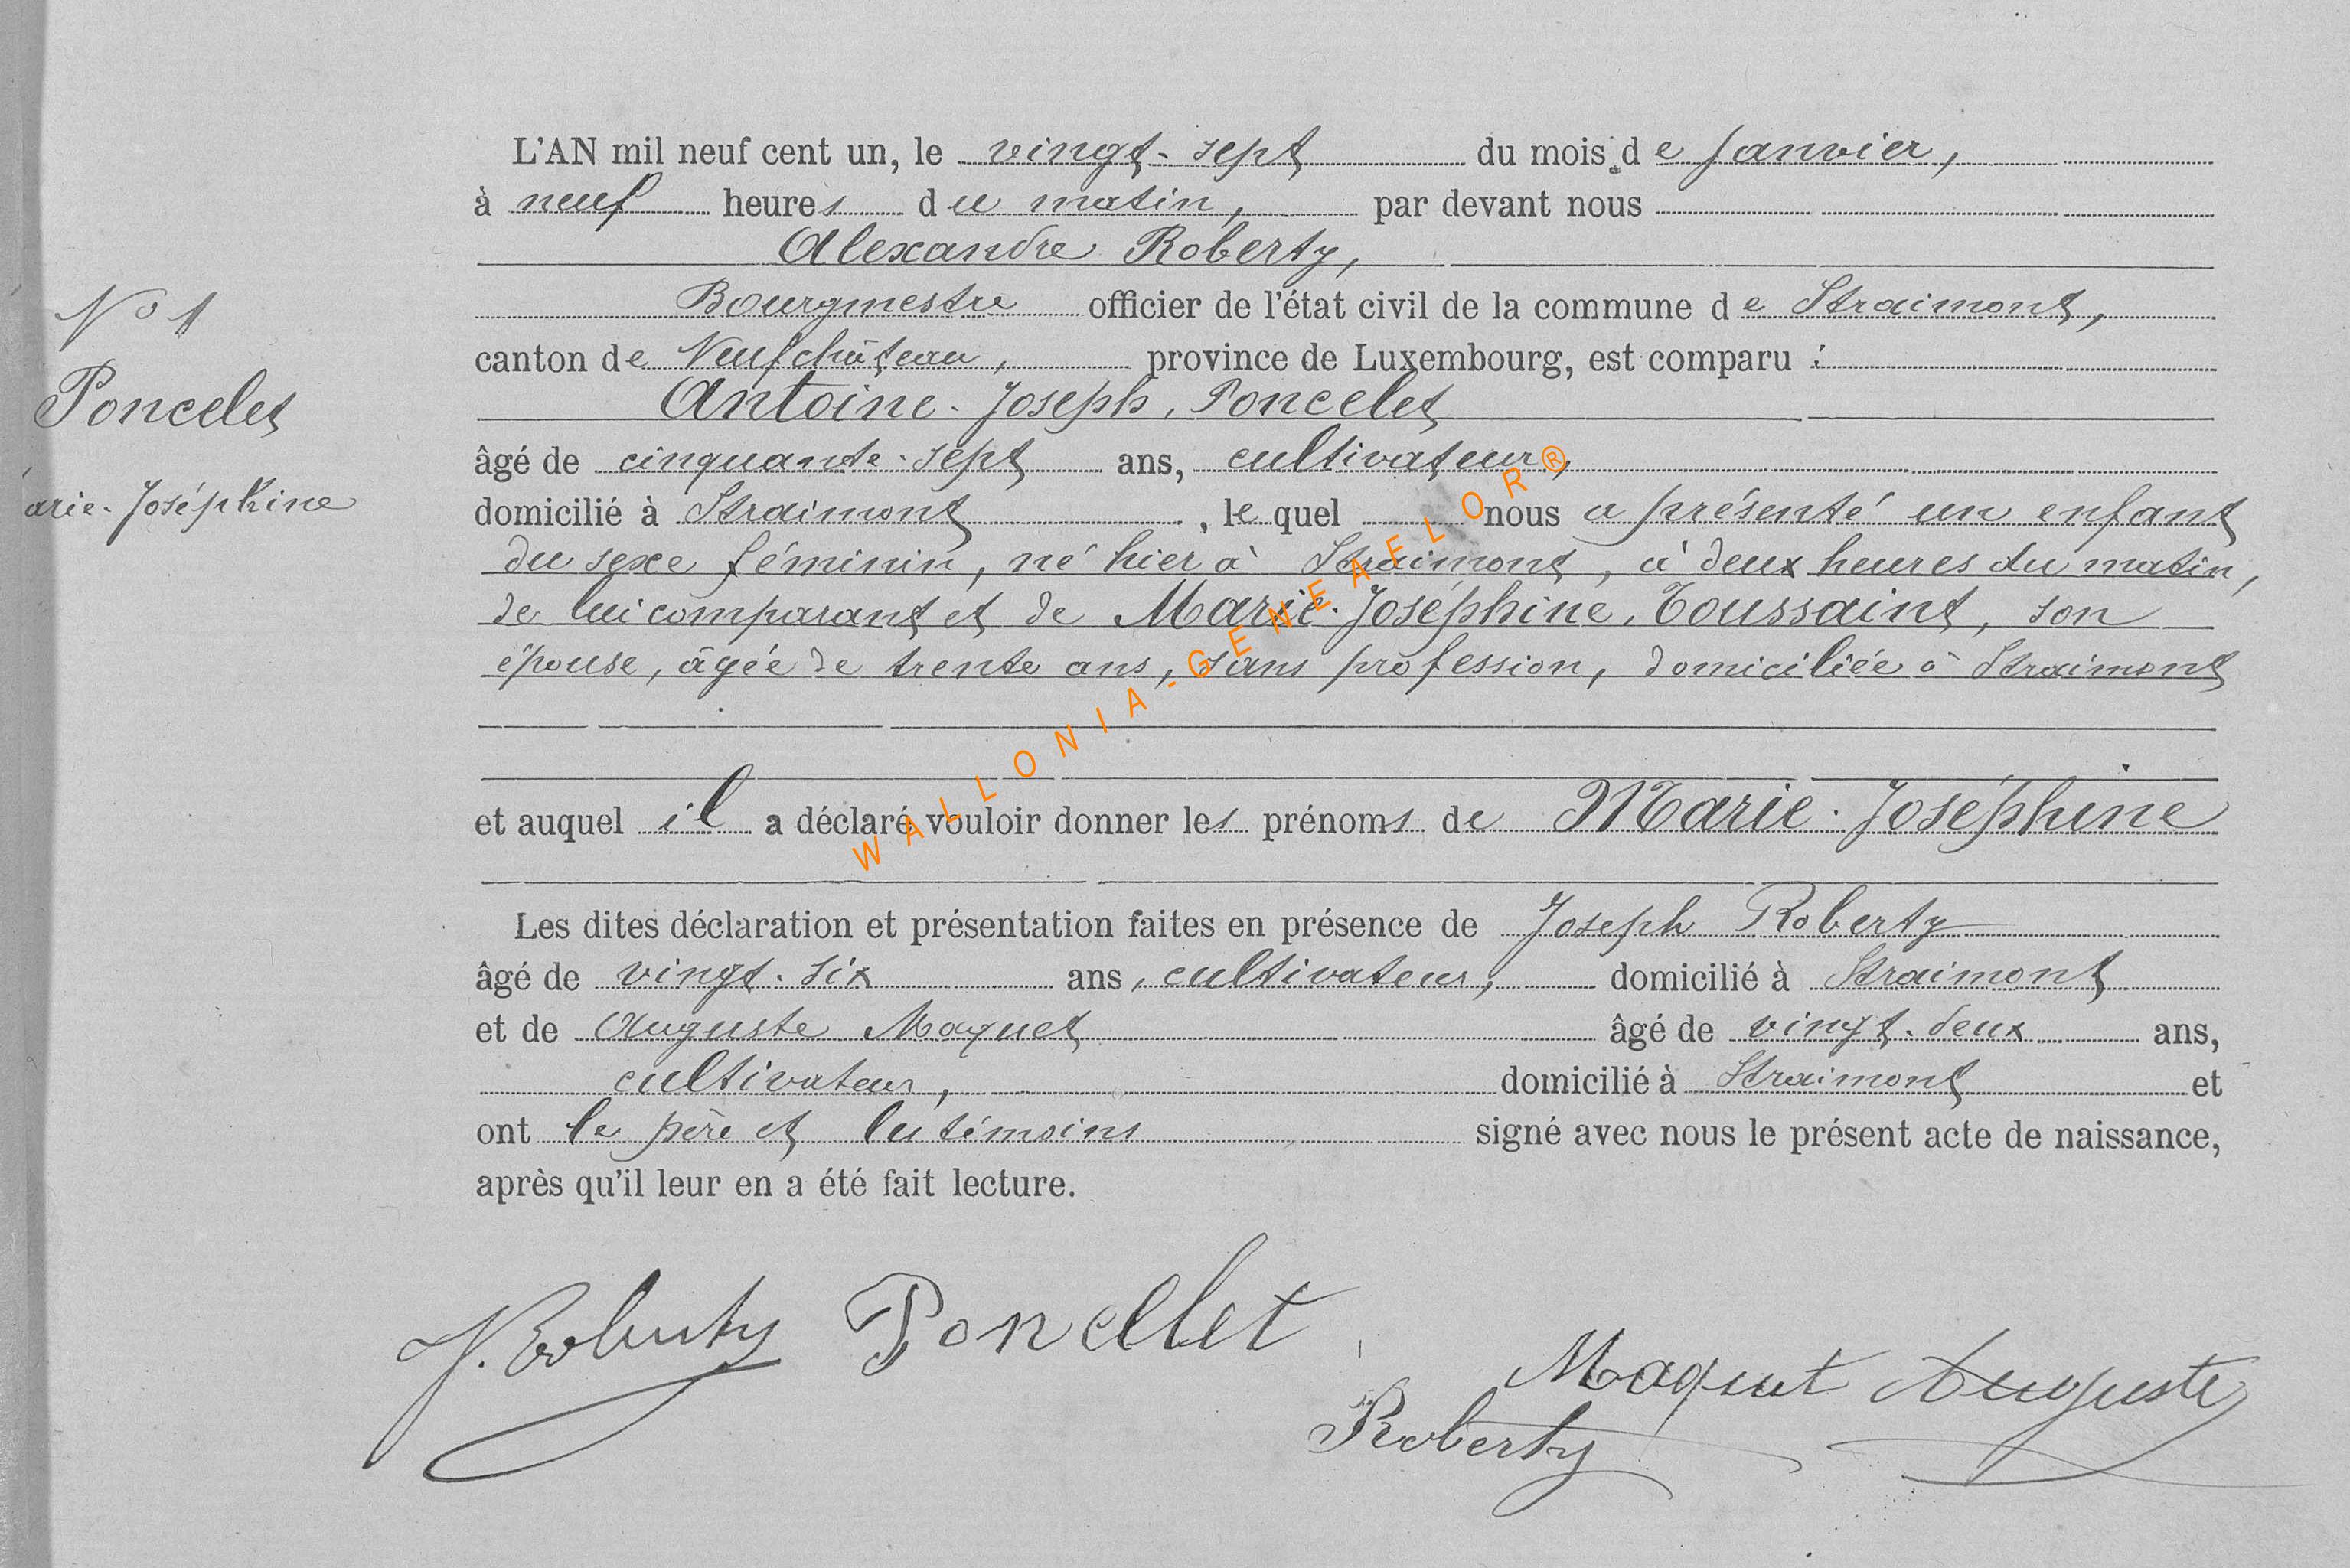 L'AN mil neuf cent un, le vingt-sept du mois de Janvier,
à neuf heures du matin, par devant nous
Alexandre Roberty,
Bourgmestre officier de l'état civil de la commune de Straimont,
canton de Neufchâteau, province de Luxembourg, est comparu :
Antoine-Joseph, Poncelet
âgé de cinquante-sept ans, cultivateur,
domicilié à Straimont, lequel nous a présenté un enfant
du sexe féminin, né hier à Straimont, à deux heures du matin,
de lui comparant et de Marie-Joséphine, Toussaint, son
épouse, âgée de trente ans, sans profession, domiciliée à Straimont
et auquel il a déclaré vouloir donner les prénoms de Marie-Joséphine
Les dites déclaration et présentation faites en présence de Joseph Roberty
âgé de vingt-six ans, cultivateur, domicilié à Straimont
et de Auguste Maquet âgé de vingt-deux ans,
cultivateur, domicilié à Straimont et
ont le père et les témoins signé avec nous le présent acte de naissance,
après qu'il leur en a été fait lecture.
No 1
Poncelet
arie-Joséphine
J. Roberty Poncellet
Maquet Auguste
Roberty
WALLONIA-GENEAFLOR®